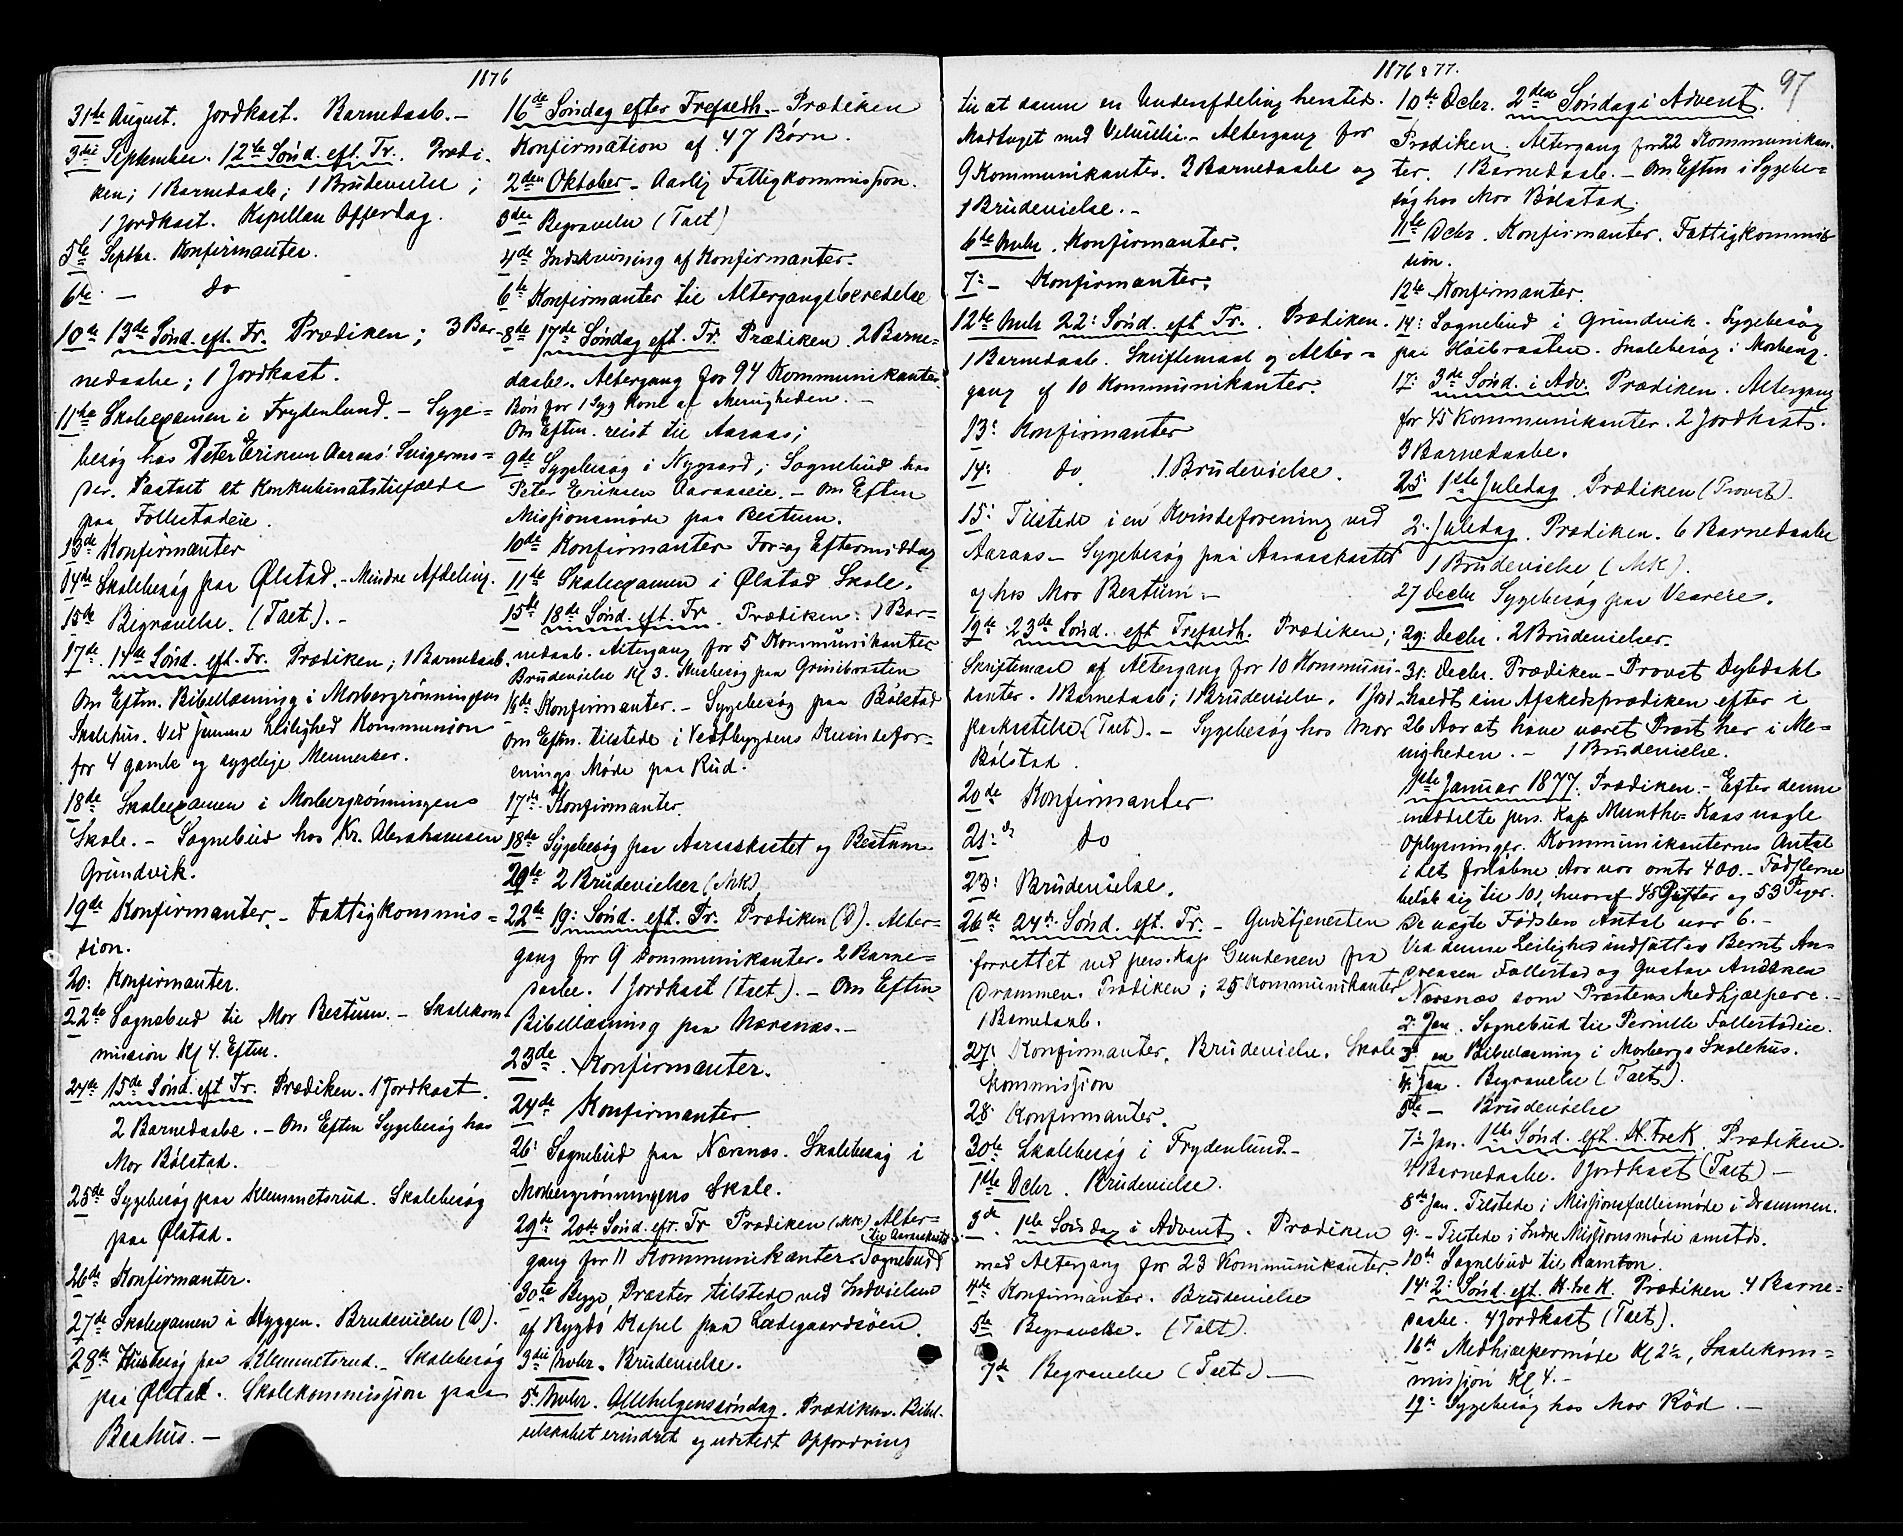 1876
31te August. Jordkast. Barnedaab. –
3die September. 12te Sønd. eft. Tr. Prædi-
ken; 1 Barnedaab; 1 Brudevielse;
1 Jordkast. Kapellan Offerdag.
5te Septbr. Konfirmanter.
6te – do
10de 13de Sønd. eft. Tr. Prædiken; 3 Bar-
nedaabe; 1 Jordkast.
11te Skoleexamen i Frydenlund. – Syge-
besøg hos Peter Eriksen Aaraas' Svigermo-
der. Paatalt et Konkubinatstilfælde
paa Follestadeie.
13de Konfirmanter
14de Skolebesøg paa Ølstad. – Mindre Afdeling.
15de Begravelse. (Taet). –
17de 14de Sønd. eft. Tr. Prædiken; 1 Barnedaab.
Om Eftm. Bibellæsning i Morbergrønningens
Skolehus. Ved samme Leilighed Kommunion
for 4 gamle og sygelige Mennesker.
18de Skoleexamen i Morbergrønningens
Skole. – Sognebud hos Kr. Abrahamsen
Grundvik.
19de Konfirmanter – Fattigkommis-
sion.
20: Konfirmanter.
22de Sognebud til Mor Bestum. – Skolekom-
mission Kl 4. Eftm.
24de 15de Sønd. eft Tr. Prædiken. 1 Jordkast.
2 Barnedaabe. – Om Eftm Sygebesøg hos
Mor Bølstad.
25de Sygebesøg paa Klemmetsrud. Skolebesøg
paa Ølstad.
26de Konfirmanter.
27de Skoleexamen i Hyggen. Brudevielse (D).
28de Husbesøg paa Klemmetsrud. – Skolebesøg
paa Ølstad. Skolekommission paa
Baahus. –
16de Søndag efter Trefoldh. – Prædiken
Konfirmation af 47 Børn.
2den Oktober – Aarlig Fattigkommission.
3die Begravelse (Taet)
4de Indskrivning af Konfirmanter.
6te Konfirmanter til Altergangsberedelse
8de 17de Søndag eft. Tr. Prædiken. 2 Barne-
daabe. Altergang for 94 Kommunikanter.
Bøn for 1 syg Kone af Menigheden. –
Om Eftm. reist til Aaraas;
9de Sygebesøg i Nygaard; Sognebud hos
Peter Eriksen Aaraaseie. – Om Eftm
Missionsmøde paa Bestum.
10de Konfirmanter For- og Eftermiddag
11te Skoleexamen i Ølstad Skole.
15de 18de Sønd. eft. Tr. Prædiken: 1 Bar-
nedaab. Altergang for 5 Kommunikanter
Brudevielse Kl 3. Husbesøg paa Grinibraaten
16de Konfirmanter. – Sygebesøg paa Bølstad
Om Eftm. tilstede i Vestbygdens Kvindefor-
enings Møde paa Rud.
17de Konfirmanter.
18de Sygebesøg paa Aaraaskastet og Bestum
20de 2 Brudevielser (MK)
22de 19: Sønd. eft. Tr. Prædiken (D). Alter-
gang for 9 Kommunikanter. 2 Barne-
daabe. 1 Jordkast (Taet). – Om Eftm
Bibellæsning paa Nærsnæs. –
23de Konfirmanter.
24de Konfirmanter
26: Sognebud paa Nærsnæs. Skolebesøg i
Morbergrønningens Skole.
29de 20de Sønd. eft. Tr Prædiken (MK) Alter-
til Aaraaskastet
gang for 11 Kommunikanter. Sognebud
30te Begge Præster tilstede ved Indvielsen
af Bygdø Kapel paa Ladegaardsøen.
3die Novbr. Brudevielse.
5: Novbr. Allehelgenssøndag. Prædiken. Bibel-
selskabet erindret og udstedt Opfordring
1876 & 77.
97
til at danne en Underafdeling hersteds.
Modtaget med Velvilie. – Altergang for
9 Kommunikanter. 2 Barnedaabe og
1 Brudevielse. –
6te Novbr. Konfirmanter.
7: – Konfirmanter.
12te Novbr 22: Sønd. eft Tr. Prædiken.
1 Barnedaab. Skriftemaal og Alter-
gang af 10 Kommunikanter.
13: Konfirmanter
14: do 1 Brudevielse.
15: Tilstede i en Kvindeforening ved
Aaraas – Sygebesøg paa Aaraaskastet
og hos Mor Bestum. –
19de 23de Sønd. eft Trefoldh. Prædiken;
Skriftemaal og Altergang for 10 Kommuni-
kanter. 1 Barnedaab; 1 Brudevielse. 1 Jord-
paakastelse (Taet). – Sygebesøg hos Mor
Bølstad.
20de Konfirmanter
21: do
23: Brudevielse.
26de 24de Sønd. eft. Tr. – Gudstjenesten
forrettet ved pers. Kap. Gundersen fra
Drammen. Prædiken; 25 Kommunikanter
1 Barnedaab.
27: Konfirmanter. Brudevielse. Skole
kommission
28. Konfirmanter.
30te Skolebesøg i Frydenlund –
1ste Dcbr. Brudevielse.
3de. 1ste Søndag i Advent. Prædiken
med Altergang for 23 Kommunikanter.
4de Konfirmanter. Brudevielse
5te Begravelse. (Talt).
7de Begravelse (Taet). –
10de Dcbr. 2den Søndag i Advent.
Prædiken. Altergang for 22 Kommunikan-
ter. 1 Barnedaab. – Om Eftm i Sygebe-
søg hos Mor Bølstad.
11te Dcbr. Konfirmanter. Fattigkommis-
sion.
12te Konfirmanter.
14: Sognebud i Grundvik. Sygebesøg
paa Høibraaten. Skolebesøg i Morberg.
17: 3de Sønd. i Adv. Prædiken. Altergang
for 45 Kommunikanter. 2 Jordkast.
3 Barnedaabe.
25: 1ste Juledag. Prædiken (Provst).
2: Juledag. Prædiken. 6 Barnedaabe
1 Brudevielse (MK).
27 Decbr Sygebesøg paa Veareie.
29: Decbr. 2 Brudevielser.
31: Decbr. Prædiken – Provst Dybdahl
holdt sin Afskedsprædiken efter i
26 Aar at have været Præst her i Me-
nigheden. – 1 Brudevielse.
1ste Januar 1877. Prædiken. – Efter denne
meddelte pers. Kap Munthe-Kaas nogle
Oplysninger. Kommunikanternes Antal
i det forløbne Aar var omtr 400. – Fødslerne
beløb sig til 101, hvoraf 48 Gutter og 53 Piger.
De uægte Fødslers Antal var 6. –
Ved denne Leilighed indsattes Bernt An-
dreasen Follestad og Gustav Andersen
Nærsnæs som Præstens Medhjælpere. –
2: Jan. Sognebud til Pernille Follestadeie.
3: en Bibellæsning i Morbergs Skolehus.
4: Jan. Begravelse (Taet).
5te – Brudevielse
7: Jan. 1ste Sønd. eft. H. tre K. Prædiken.
4 Barnedaabe. 1 Jordkast (Taet) –
8de Jan. Tilstede i Missionsfællesmøde i Drammen.
9: – Tilstede i Indre Missionsmøde smstds.
10de Sognebud til Ramton.
14: 2: Sønd. eft. H. tre K. Prædiken. 4 Barne-
daabe. 4 Jordkast (Taet).
16de Medhjælpermøde Kl 2½, Skolekom-
mission Kl 4. –
19: Sygebesøg hos Mor Rød. –